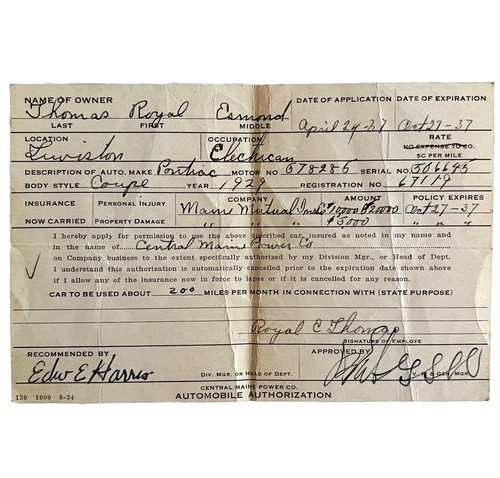 NAME OF OWNER DATE OF APPLICATION DATE OF EXPIRATION
Thomas Royal Esmond April 29-37 Oct 27-37
LAST FIRST MIDDLE
LOCATION OCCUPATION RATE
NO EXPENSE TO CO.
Lewiston Electrican 5C PER MILE
DESCRIPTION OF AUTO. MAKE Pontiac MOTOR NO 578285 SERIAL NO 506645
BODY STYLE Coupe YEAR 1929 REGISTRATION NO. 67119
INSURANCE Personal Injury COMPANY AMOUNT POLICY EXPIRES
Maine Mutual Ins. $10000 $20000 Oct 27-37
NOW CARRIED Property Damage " " " $5000 " " "
I hereby apply for permission to use the above described car, insured as noted in my name and
in the name of Central Maine Power Co
on Company business to the extent specifically authorized by my Division Mgr., or Head of Dept.
I understand this authorization is automatically cancelled prior to the expiration date shown above
if I allow any of the insurance now in force to lapse or if it is cancelled for any reason.
CAR TO BE USED ABOUT 200 MILES PER MONTH IN CONNECTION WITH (STATE PURPOSE)
Royal E Thomas
SIGNATURE OF EMPLOYE
RECOMMENDED BY APPROVED BY
Edw E Harris
DIV. MGR. OR HEAD OF DEPT. V. P. & GEN. MGR.
CENTRAL MAINE POWER CO.
130 1000 8-34 AUTOMOBILE AUTHORIZATION